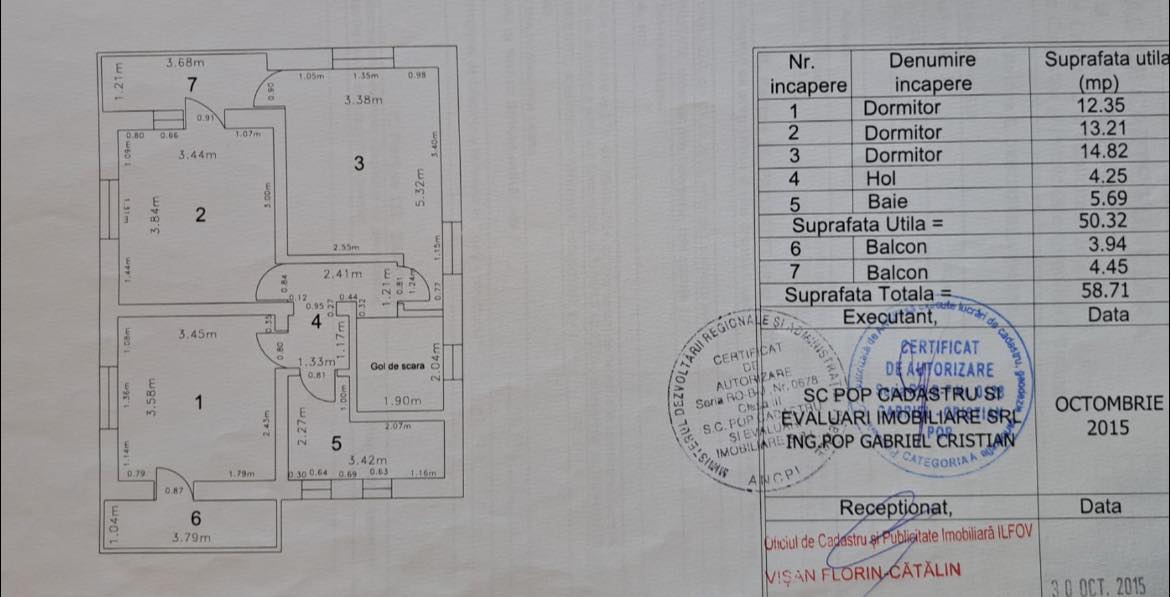 3.68m
1.21m
7
0.90
1.05m
1.35m
0.98
3.38m
0.91
0.80
0.66
1.07m
1.09m
3.44m
3.40m
3
3.00m
5.32m
2
3.84m
1.31m
1.44m
2.55m
1.15m
2.41m
0.84
1.21m
0.81
1.24m
0.77
0.12
0.95
0.27
0.44
0.32
4
0.35
3.45m
1.08m
0.80
1.17m
1.33m
0.81
Gol de scara
2.04m
1.36m
3.58m
1
1.00m
1.90m
2.43m
2.27m
2.07m
5
1.14m
3.42m
0.79
1.79m
0.30
0.64
0.69
0.63
1.16m
0.87
6
1.04m
3.79m
Nr. incapere Denumire incapere Suprafata utila (mp)
1 Dormitor 12.35
2 Dormitor 13.21
3 Dormitor 14.82
4 Hol 4.25
5 Baie 5.69
Suprafata Utila = 50.32
6 Balcon 3.94
7 Balcon 4.45
Suprafata Totala = 58.71
Executant, Data
MINISTERUL DEZVOLTĂRII REGIONALE ȘI ADMINISTRAȚ
CERTIFICAT
DE
AUTORIZARE
Seria RO-B-J, Nr. 0678
Clasa II
S.C. POP CADASTRU
SI EVALUARI
IMOBILIARE
ANCPI
CERTIFICAT
DE AUTORIZARE
POP
CATEGORIA A
SC POP CADASTRU SI
EVALUARI IMOBILIARE SRL
ING.POP GABRIEL CRISTIAN
OCTOMBRIE
2015
Receptionat, Data
Oficiul de Cadastru și Publicitate Imobiliară ILFOV
VIȘAN FLORIN-CĂTĂLIN
30 OCT. 2015